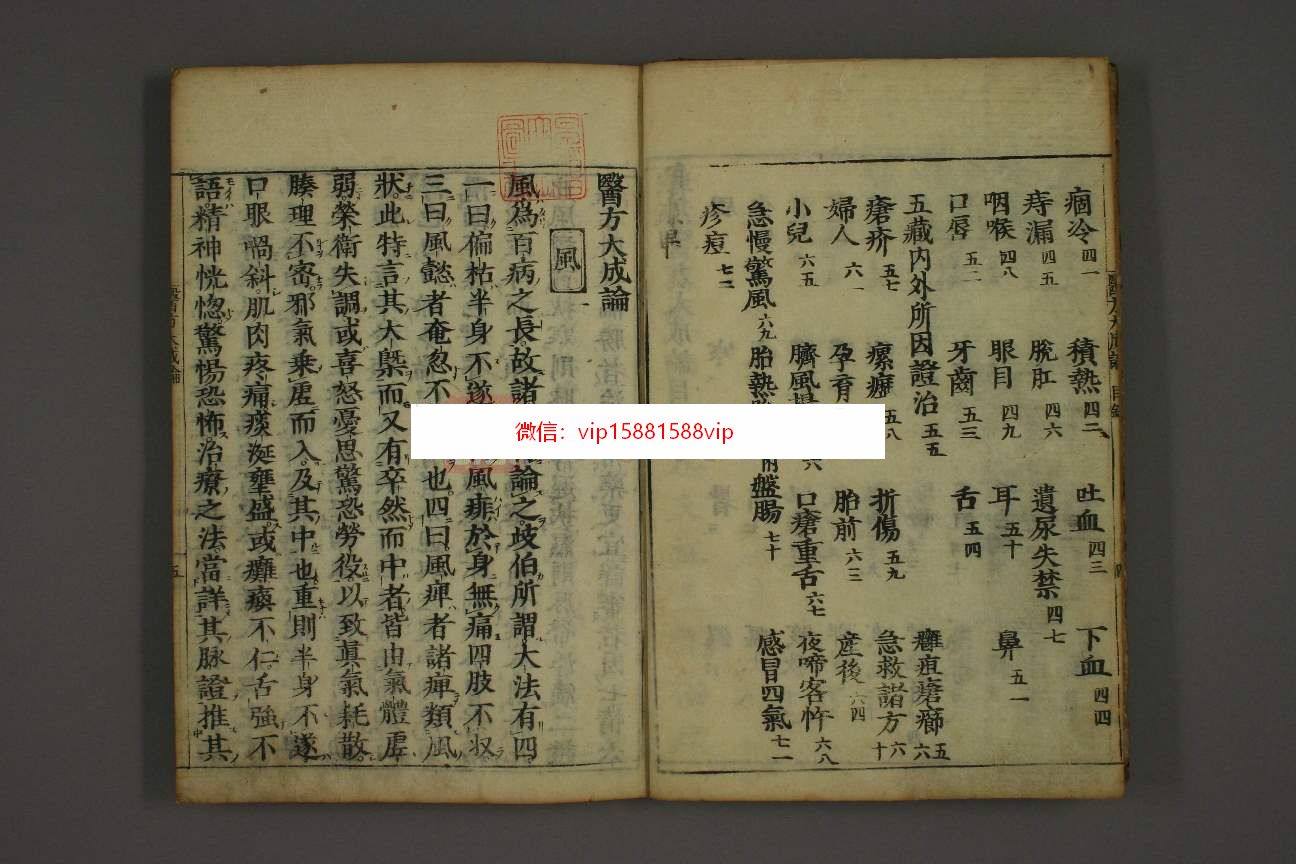 痼冷 四一 積熱 四二 吐血 四三 下血 四四
痔漏 四五 脫肛 四六 遺尿失禁 四七
咽喉 四八 眼目 四九 耳 五十 鼻 五一
口唇 五二 牙齒 五三 舌 五四
五藏內外所因證治 五五
瘡疥 五七 瘰癧 五八 折傷 五九 急救諸方 六十
癰疽瘡癤 五六
婦人 六一 孕育 胎前 六三 產後 六四
小兒 六五 臍風撮 六 口瘡重舌 六七 夜啼客忤 六八
急慢驚風 六九 胎熱 盤腸 七十 感冒四氣 七一
疹痘 七二
醫方大成論 目錄
醫方大成論
風 一
風為百病之長故諸 論之岐伯所謂大法有四
一曰偏枯半身不遂 風痱於身無痛四肢不收
三曰風懿者奄忽不 也四曰風痺者諸痺類風
狀此特言其大槩而又有卒然而中者皆由氣體虛
弱榮衛失調或喜怒憂思驚恐勞役以致眞氣耗散
腠理不密邪氣乗虛而入及其中也重則半身不遂
口眼喎斜肌肉疼痛痰涎壅盛或癱瘓不仁舌強不
語精神恍惚驚惕恐怖治療之法當詳其脉證推其
醫方大成論 五
微信：vip15881588vip